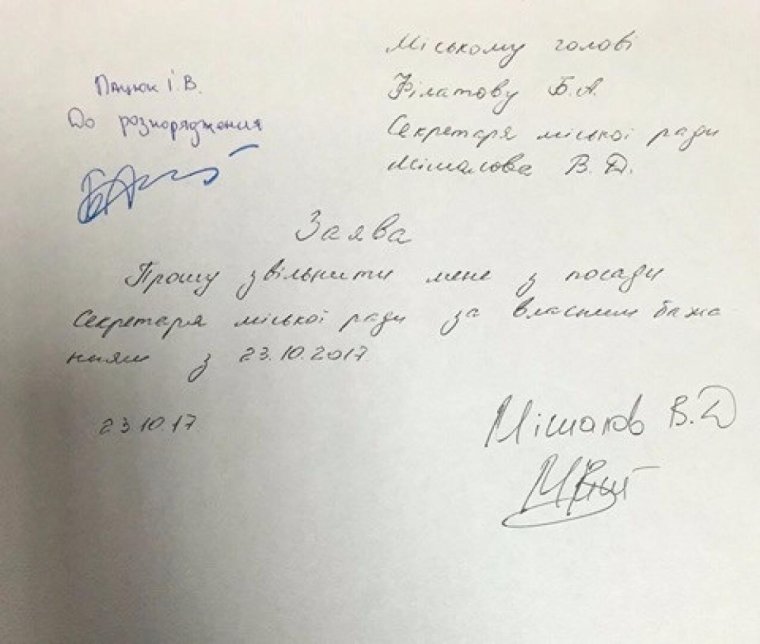 Міському голові
Філатову Б.А.
Секретаря міської ради
Мішалова В.Д.
Пацюк І.В.
До розпорядження
Заява
Прошу звільнити мене з посади
Секретаря міської ради за власним бажа
нням з 23.10.2017
23.10.17
Мішалов В.Д